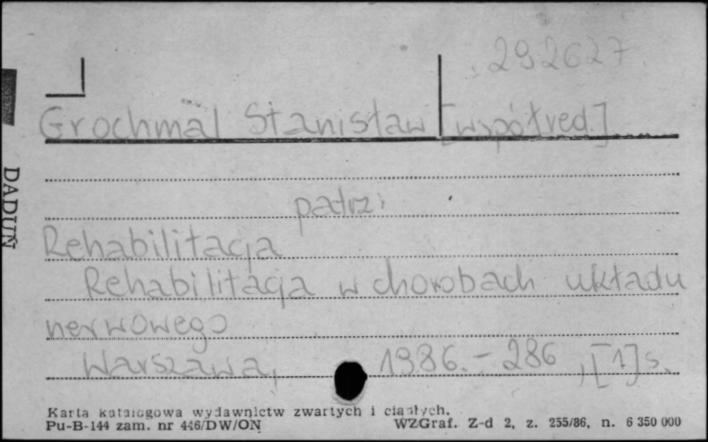 292627
Grochmal Stanisław [współred.]
patrz:
Rehabilitacja
Rehabilitacja w chorobach układu
nerwowego
Warszawa, 1986. – 286, [1] s.
DADUŃ
Karta katalogowa wydawnictw zwartych i ciągłych.
Pu-B-144 zam. nr 446/DW/ON WZGraf. Z-d 2, z. 255/86, n. 6 350 000